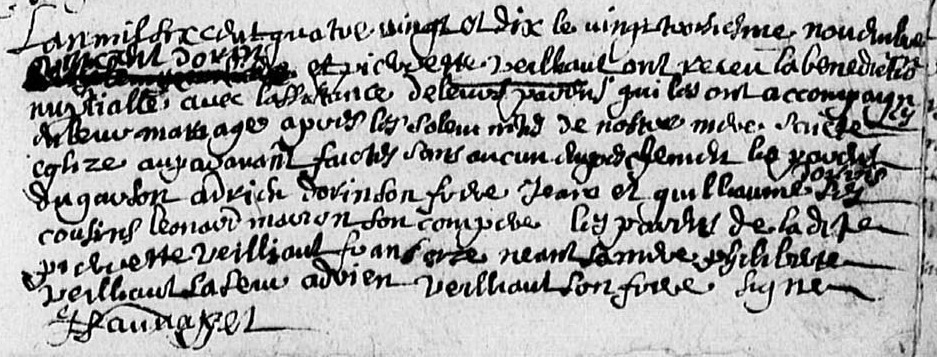 Lan mil six cent quatre vingt et dix le vingt troisiesme novembre
vincant dorin et pierrette veilliaut ont receu la benedictiō
nuptialle avec lassistance de leurs parens qui les ont accompagn
de leur mariage apres les solemnites de nostre mere saincte
eglize auparavant faictes sans aucun empeschement les parens
du garson adrien dorin son frere Jean et guilleaume dorins ses
cousins leonard marion son compere les parens de ladite
pierrette veilliaut franCoize neant sa mere philiberte
veilliaut sa seur adrien veilliaut son frere signe